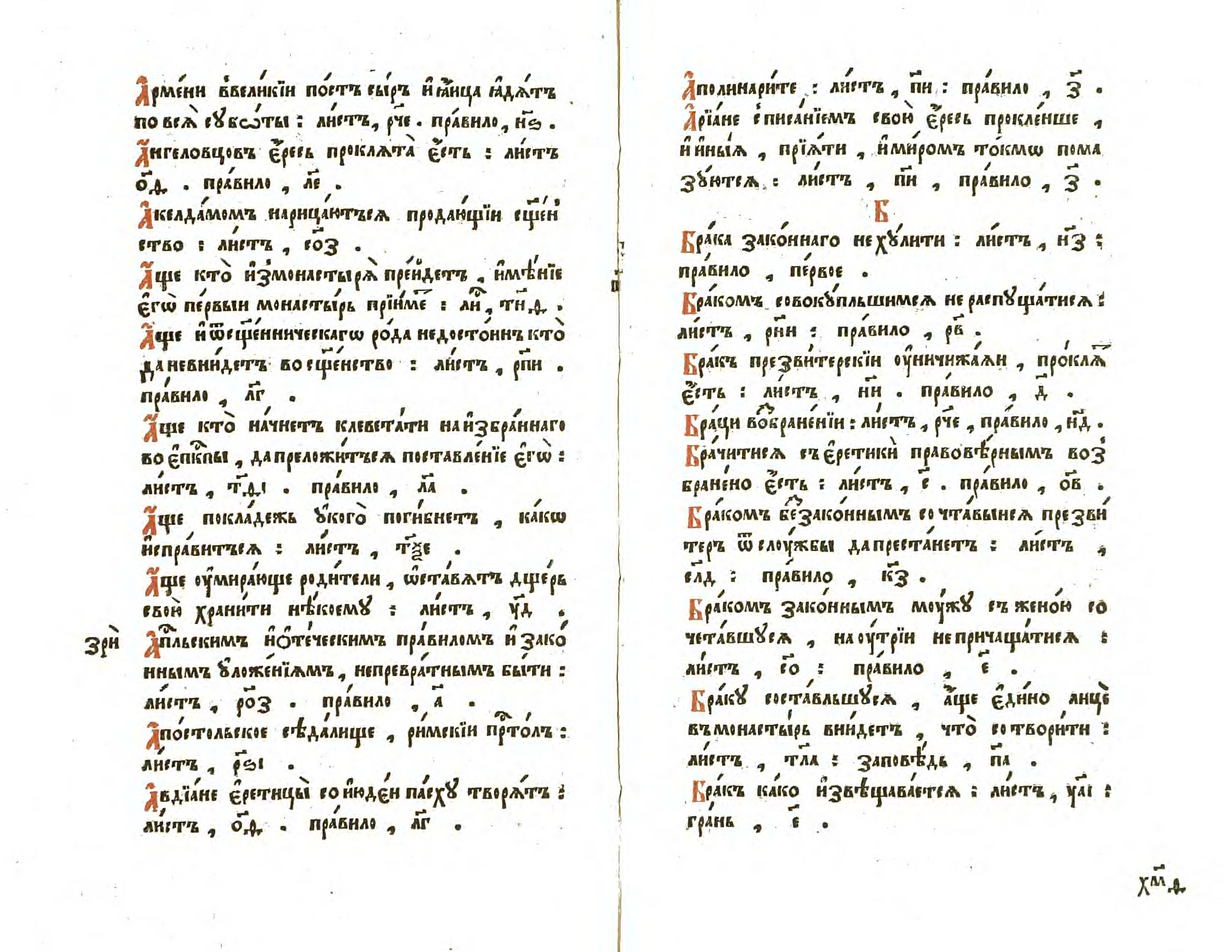 А҆рме́ни вве́ликїи по́стъ сы́ръ и҆ ꙗ҆ица ꙗ҆дѧ́тъ
по всѧ̀ сꙋбѡ́ты : ли́стъ , р҃че . пра́вило , н҃ѕ .
А҆нгеловцовъ є҆́ресь проклѧта̀ є҆́сть : ли́стъ
о҃д . пра́вило , л҃е .
А҆келда́момъ нарица́ютъсѧ продаю́щїи сщ҃ен
ство : ли́стъ , со҃з .
А҆́ще кто̀ и҆з̾монастырѧ̀ пре́йдетъ , и҆мѣ́нїе
є҆гѡ̀ пе́рвыи монасты́рь прїи́ме : ли́ , тн҃д .
А҆́ще и҆ ѿсщ҃е́нническагѡ ро́да недосто́инъ кто̀
да невни́детъ во сщ҃е́нство : ли́стъ , рп҃и .
пра́вило , л҃г .
А҆́ще кто̀ на́чнетъ клевета́ти на и҆збра́ннаго
во є҆пк҃пы , да преложи́тъсѧ поставле́нїе є҆гѡ̀ :
ли́стъ , т҃дı . пра́вило , л҃а .
А҆́ще покла́дежь ᲂу҆кого̀ поги́бнетъ , ка́кѡ
и҆спра́витъсѧ : ли́стъ , тѯ҃е .
А҆́ще ᲂу҆мира́юще роди́тели , ѡ҆ста́вѧтъ дще́рь
свою̀ храни́ти нѣ́коемꙋ : ли́стъ , у҃д .
зрѝ
А҆пⷭ҇льскимъ и҆ ѻ҆те́ческимъ пра́виломъ и҆ зако́
ннымъ ᲂу҆ложе́нїѧмъ , непревра́тнымъ бы́ти :
ли́стъ , ро҃з . пра́вило , а҃ .
А҆по́стольское сѣда́лище , ри́мскїи прⷭ҇то́лъ :
ли́стъ , р҃ѕı .
А҆вдїа́не є҆рети́цы со и҆юде́и па́схꙋ творѧ́тъ :
ли́стъ , о҃д . пра́вило , л҃г .
А҆полинари́те : ли́стъ , п҃и : пра́вило , з҃ .
А҆рїа́не с̾писа́нїемъ свою̀ є҆́ресь прокле́нше ,
и҆ и҆ны́ѧ , прїѧ́ти , и҆ ми́ромъ то́кмѡ пома
зꙋ́ютсѧ : ли́стъ , п҃и , пра́вило , з҃ .
Б
Бра́ка зако́ннаго не хꙋ́лити : ли́стъ , н҃з :
пра́вило , пе́рвое .
Бра́комъ совокꙋ́пльшимсѧ не распꙋща́тисѧ :
ли́стъ , рн҃и : пра́вило , р҃в .
Бра́къ презви́терскїи ᲂу҆ничижа́ѧи , про́клѧⷮ
є҆́сть : ли́стъ , н҃и . пра́вило , д҃ .
Бра́ци воз̾бране́нїи : ли́стъ , р҃че , пра́вило , н҃д .
Бра́читисѧ съ є҆ретикѝ правовѣ́рнымъ воз̾
бранено є҆́сть : ли́стъ , є҃ . пра́вило , о҃в .
Бра́комъ без̾зако́ннымъ сочта́выисѧ презви́
теръ ѿ слоу́жбы да преста́нетъ : ли́стъ ,
сл҃д : пра́вило , к҃з .
Бра́комъ зако́ннымъ моу́жꙋ съ жено́ю со
чета́вшꙋсѧ , на оу́трїи не причаща́тисѧ :
ли́стъ , с҃о : пра́вило , є҃ .
Бра́кꙋ соста́вльшꙋсѧ , а҆́ще є҆ди́но лицѐ
въ монасты́рь вни́детъ , что̀ сотвори́ти :
ли́стъ , тл҃а : за́повѣдь , п҃а .
Бра́къ како и҆звѣщава́етсѧ : ли́стъ , у҃аı :
гра́нь , є҃ .
хм҃д